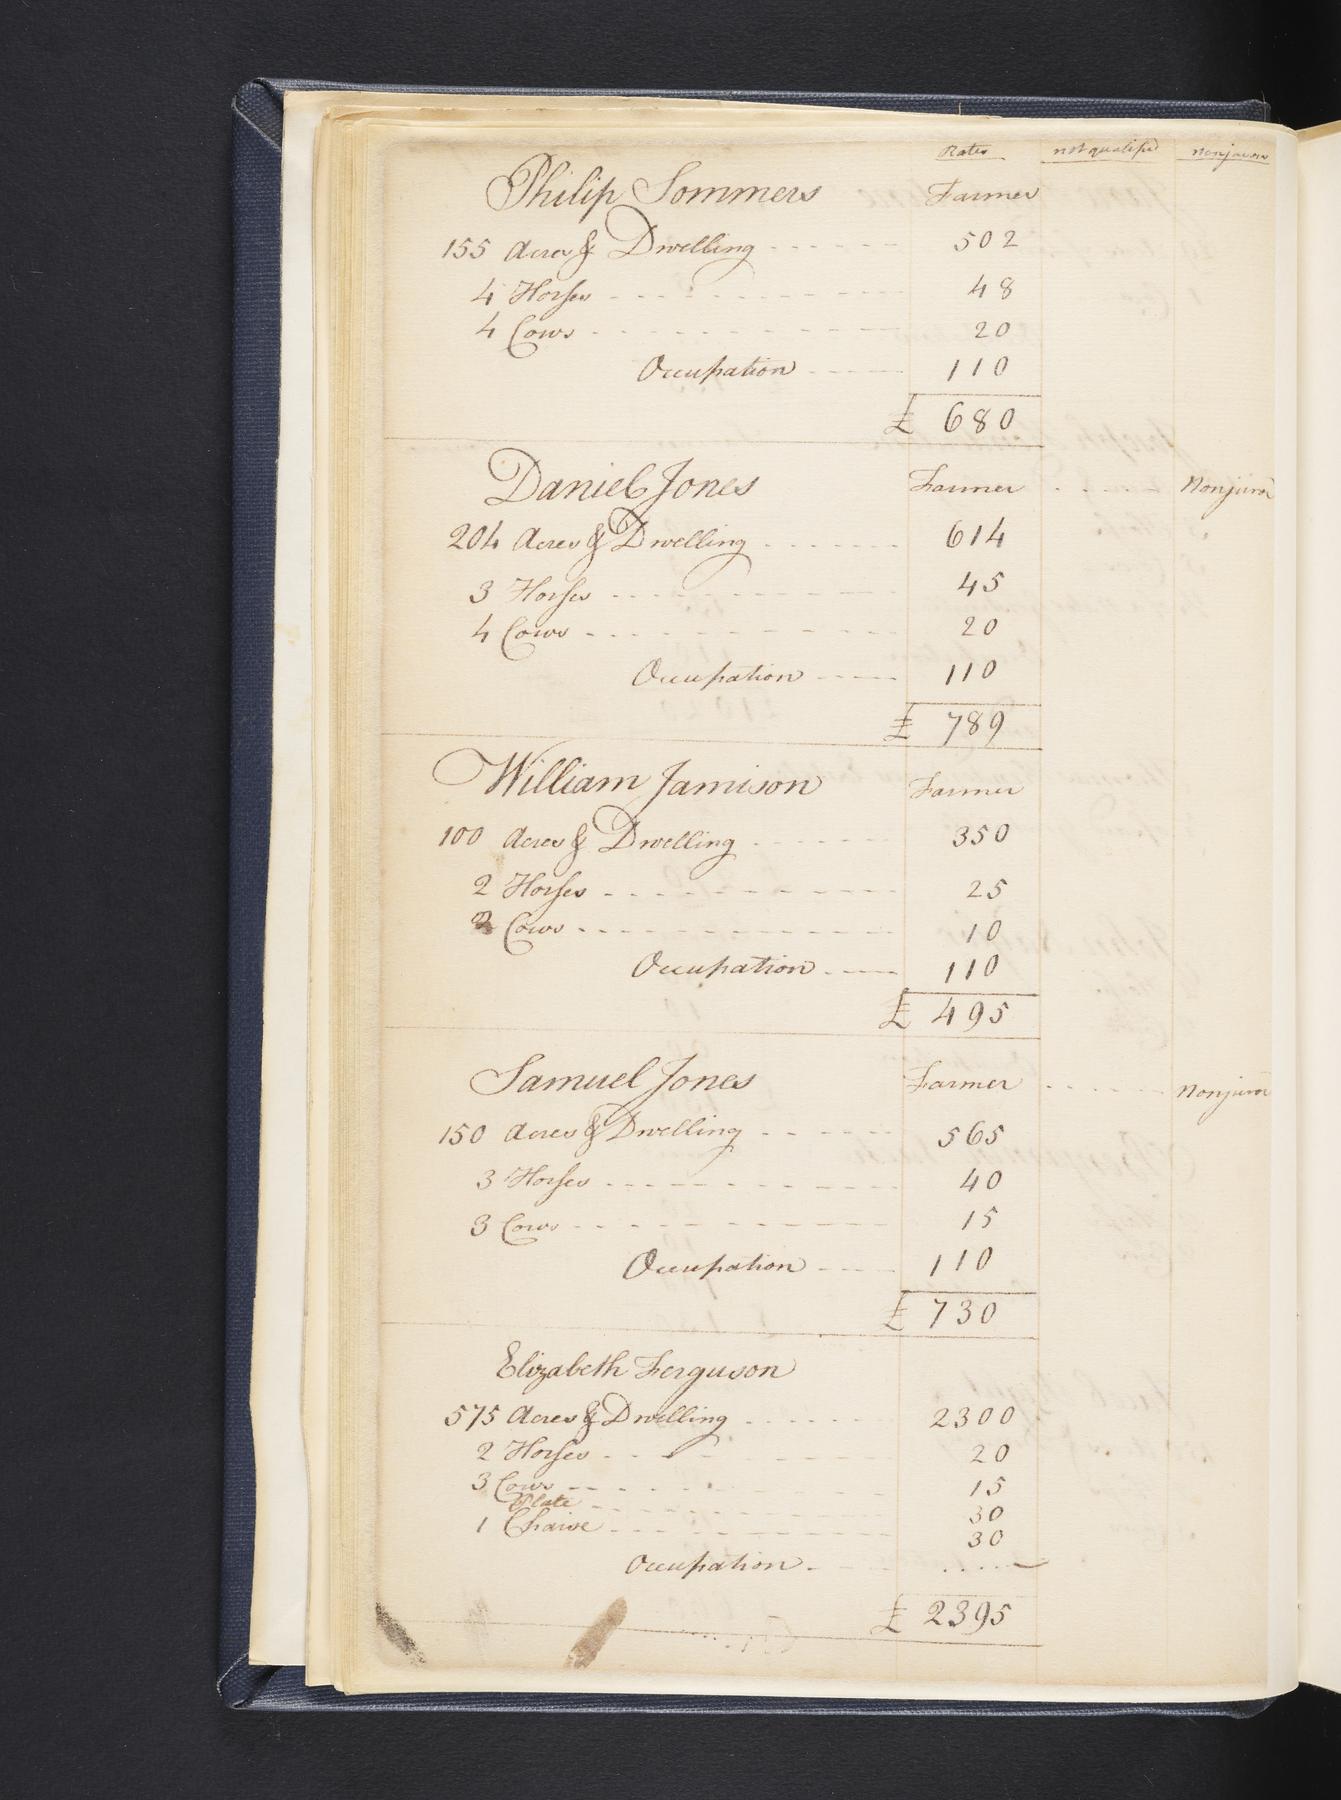 Rates not qualified nonjurors
Philip Sommers Farmer
155 Acres & Dwelling 502
4 Horses 48
4 Cows 20
Occupation 110
£ 680
Daniel Jones Farmer Nonjuror
204 Acres & Dwelling 614
3 Horses 45
4 Cows 20
Occupation 110
£ 789
William Jamison Farmer
100 Acres & Dwelling 350
2 Horses 25
2 Cows 10
Occupation 110
£ 495
Samuel Jones Farmer Nonjuror
150 Acres & Dwelling 565
3 Horses 40
3 Cows 15
Occupation 110
£ 730
Elizabeth Ferguson
575 Acres & Dwelling 2300
2 Horses 20
3 Cows 15
Plate 30
1 Chaise 30
Occupation
£ 2395